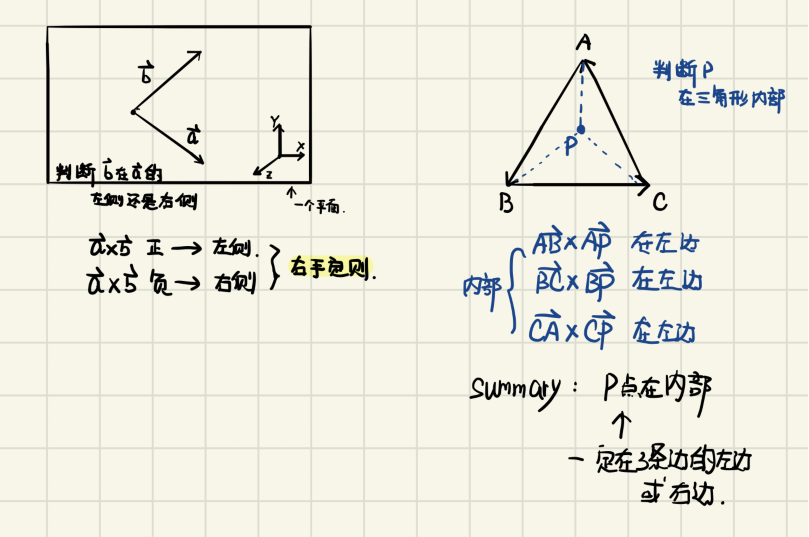 b
a
Y
X
z
判断b在a的
左侧还是右侧
一个平面.
a×b 正 → 左侧.
a×b 负 → 右侧
右手定则.
A
P
B
C
判断P
在三角形内部
内部
AB×AP 在左边
BC×BP 在左边
CA×CP 在左边
Summary: P点在内部
↑
一定在3条边的左边
或右边.